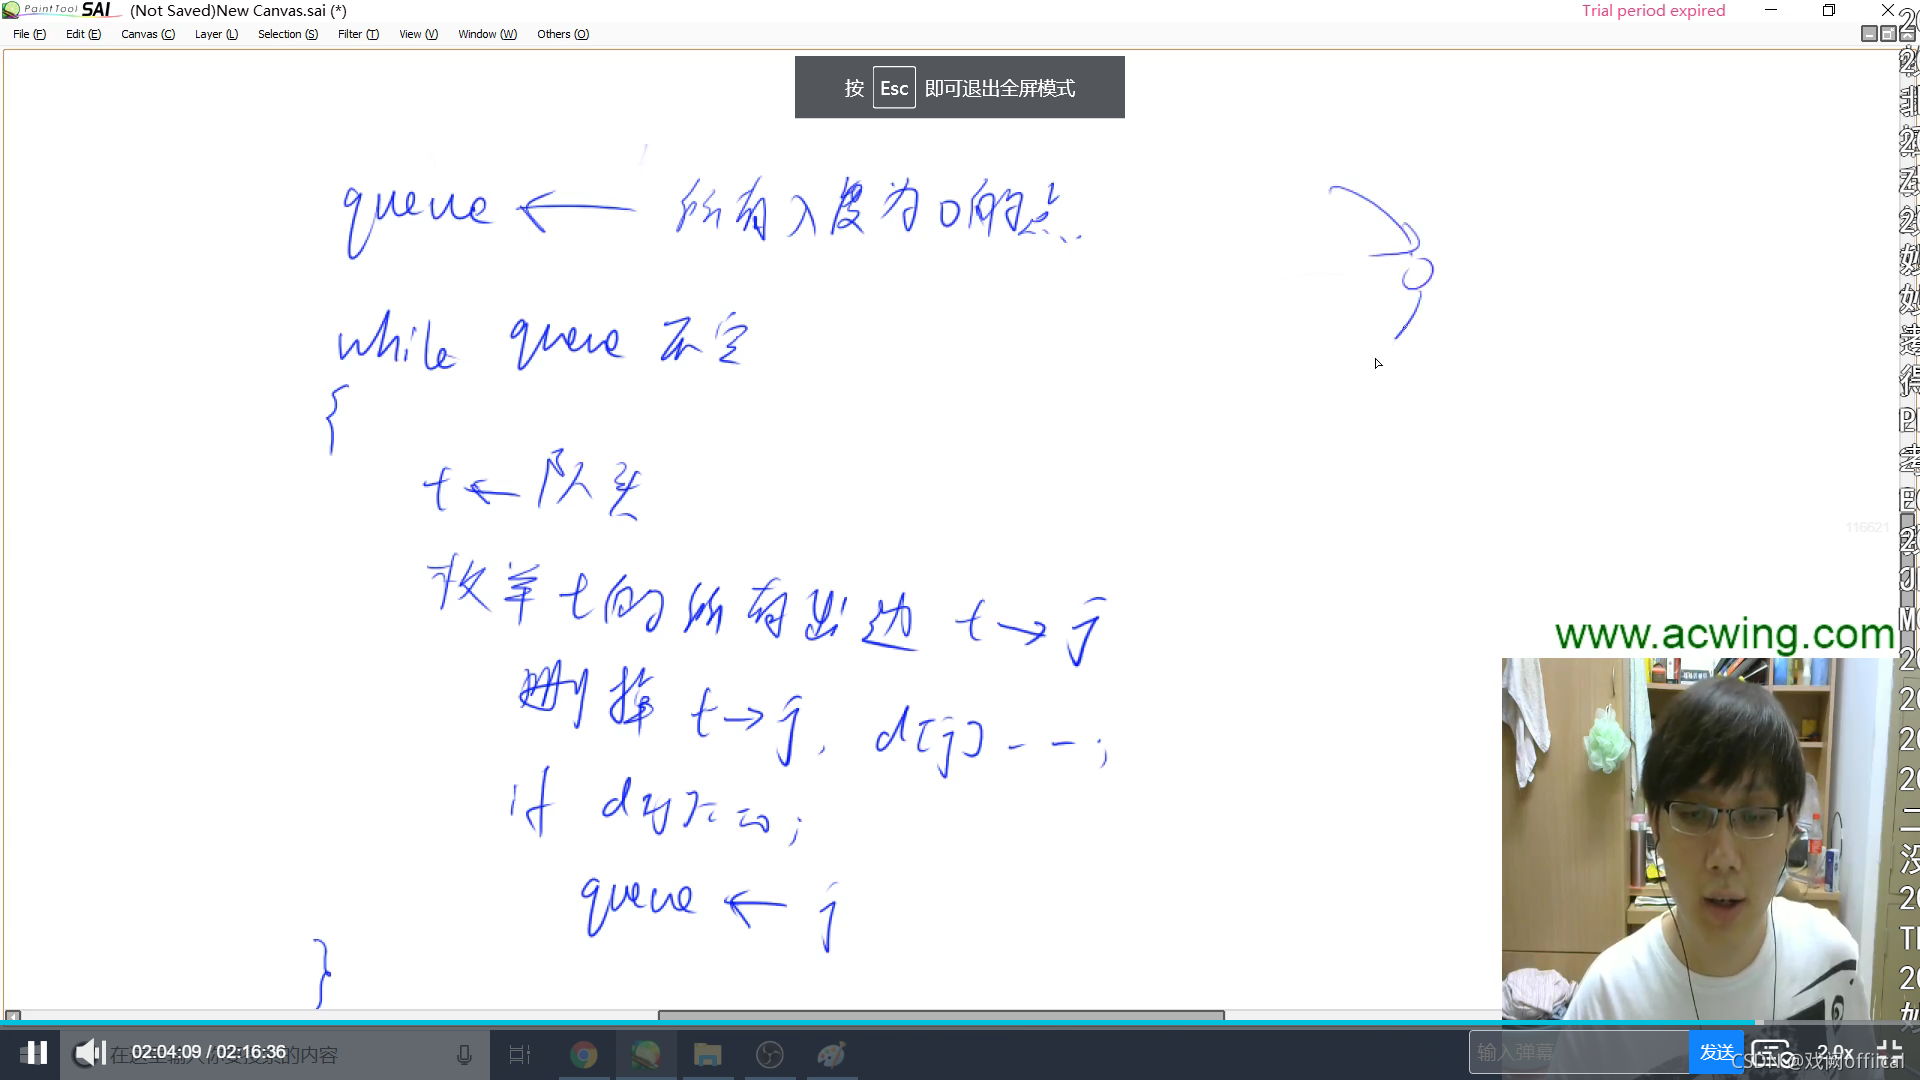 PaintTool SAI (Not Saved)New Canvas.sai (*)
Trial period expired
File (F) Edit (E) Canvas (C) Layer (L) Selection (S) Filter (T) View (V) Window (W) Others (O)
按 Esc 即可退出全屏模式
queue ← 所有入度为0的点
while queue 不空
{
t ← 队头
枚举 t的所有出边 t → j
删掉 t → j, d[j] --;
if d[j] == 0;
queue ← j
}
116621
www.acwing.com
02:04:09 / 02:16:36
在这里输入你要搜索的内容
输入弹幕
发送
2.0x
CSDN @戏网official